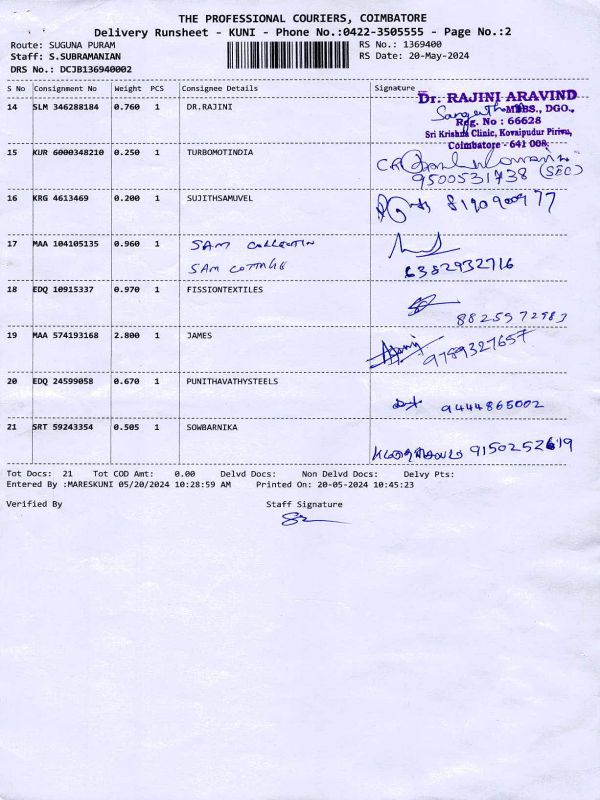 THE PROFESSIONAL COURIERS, COIMBATORE
Delivery Runsheet - KUNI - Phone No.:0422-3505555 - Page No.:2
Route: SUGUNA PURAM RS No.: 1369400
Staff: S.SUBRAMANIAN RS Date: 20-May-2024
DRS No.: DCJB136940002
S No Consignment No Weight PCS Consignee Details Signature
Dr. RAJINI ARAVIND
MBBS., DGO.,
Reg. No : 66628
Sri Krishna Clinic, Kovaipudur Pirivu,
Coimbatore - 641 008.
14 SLM 346288184 0.760 1 DR.RAJINI Sangeetha
15 KUR 6000348210 0.250 1 TURBOMOTINDIA
9500531738 (SEC)
16 KRG 4613469 0.200 1 SUJITHSAMUVEL
17 MAA 104105135 0.960 1 SAM COLLECTIN
SAM COTTAGE 6382932716
18 EDQ 10915337 0.970 1 FISSIONTEXTILES
8825972983
19 MAA 574193168 2.800 1 JAMES
9789327657
20 EDQ 24599058 0.670 1 PUNITHAVATHYSTEELS
9444865002
21 SRT 59243354 0.505 1 SOWBARNIKA
9150252619
Tot Docs: 21 Tot COD Amt: 0.00 Delvd Docs: Non Delvd Docs: Delvy Pts:
Entered By :MARESKUNI 05/20/2024 10:28:59 AM Printed On: 20-05-2024 10:45:23
Verified By Staff Signature